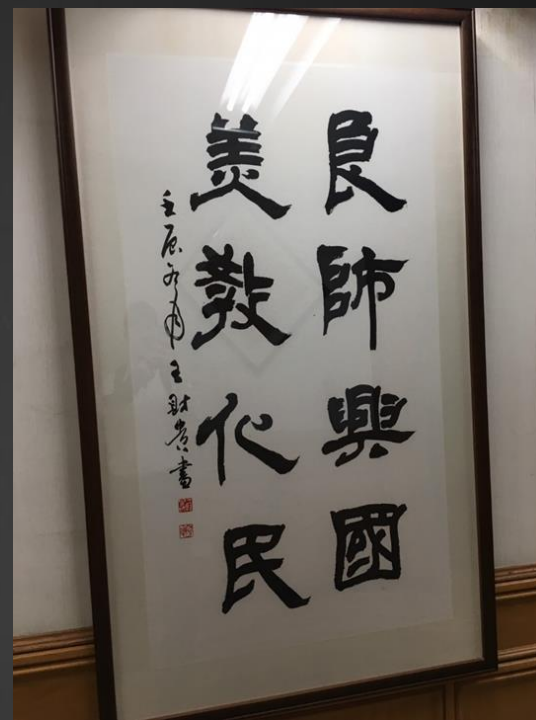 良師興國
美教化民
壬辰冬月王財貴書